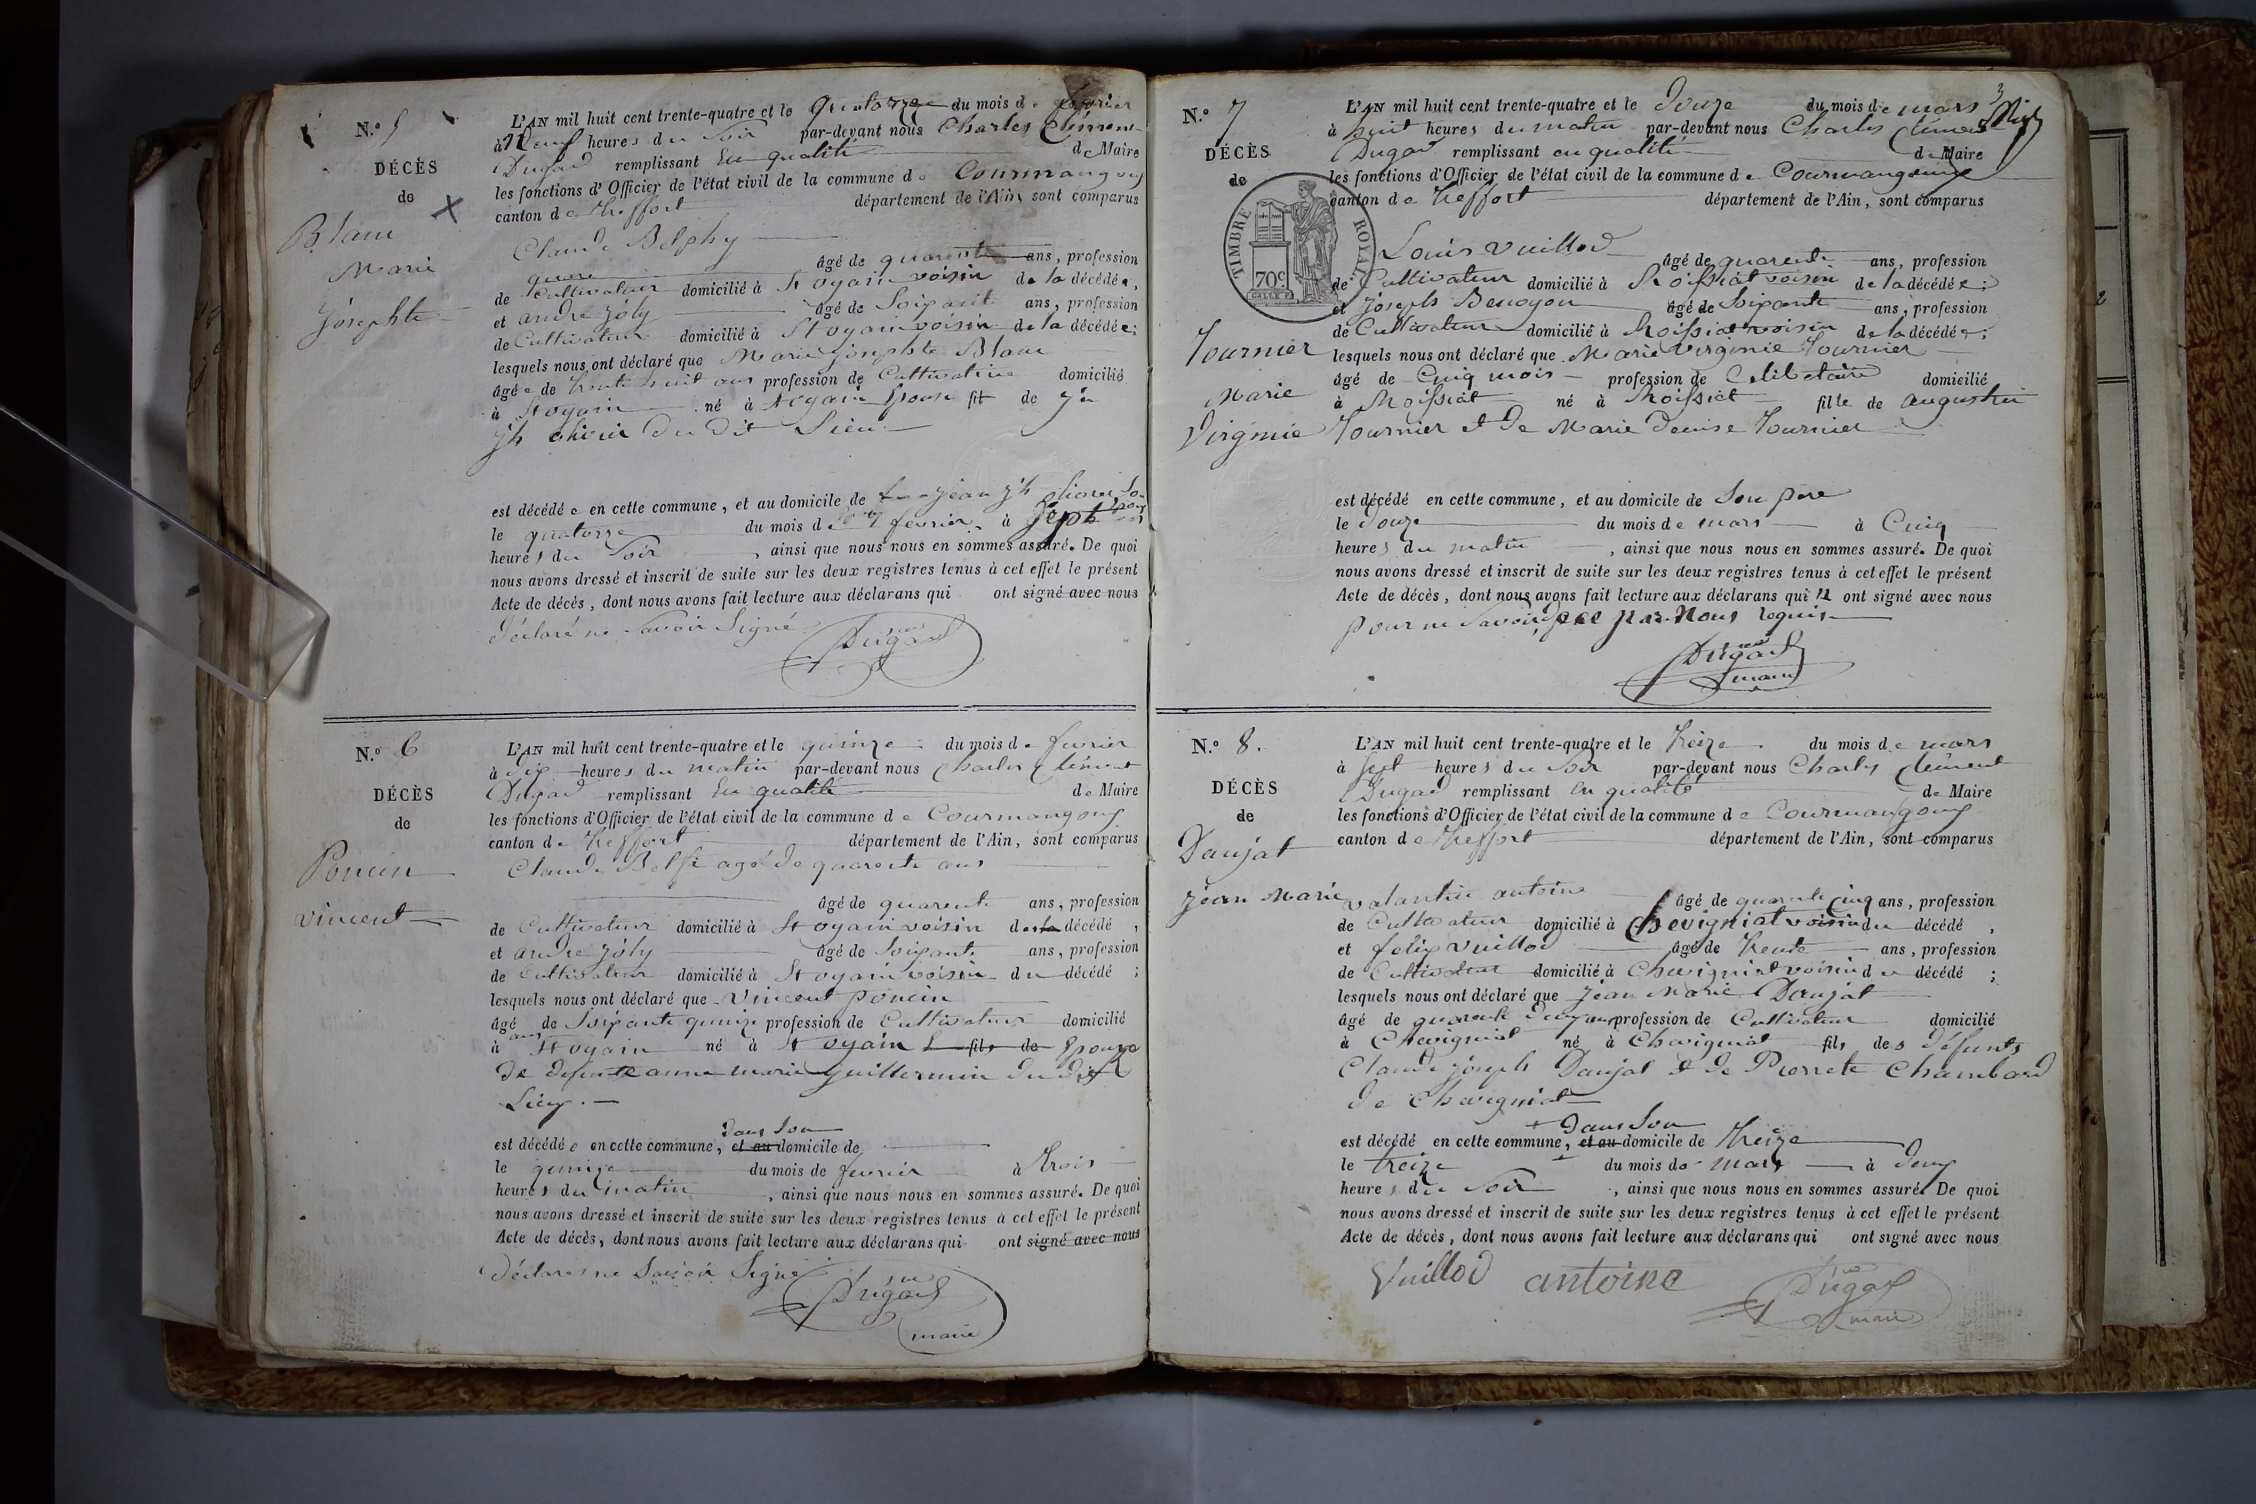 N.º 5
DÉCÈS
de
Blanc
Marie
Josephte
L'AN mil huit cent trente-quatre et le quatorze du mois de fevrier
à Neuf heures du Soir par-devant nous Charles Clément
Dugad remplissant En qualité de Maire
les fonctions d'Officier de l'état civil de la commune de Courmangoux
canton de Treffort département de l'Ain, sont comparus
Claude Belphy
âgé de quarente ans, profession
de Cultivateur domicilié à St oyain voisin de la décédée,
et andré joly âgé de Soixante ans, profession
de Cultivateur domicilié à St oyain voisin de la décédée;
lesquels nous ont déclaré que Marie josephte Blanc
âgée de trente huit ans profession de Cultivatrice domicilié
à St oyain né à St oyain Epouse fil de jn
jh du dit Lieu
est décédée en cette commune, et au domicile de jean jh
le quatorze du mois de fevrier à Sept
heures du Soir, ainsi que nous nous en sommes assuré. De quoi
nous avons dressé et inscrit de suite sur les deux registres tenus à cet effet le présent
Acte de décès, dont nous avons fait lecture aux déclarans qui ont signé avec nous
déclaré ne Savoir Signé
Dugad
N.º 6
DÉCÈS
de
Poncin
vincent
L'AN mil huit cent trente-quatre et le quinze du mois de fevrier
à dix heures du matin par-devant nous Charles Clément
Dugad remplissant En qualité de Maire
les fonctions d'Officier de l'état civil de la commune de Courmangoux
canton de Treffort département de l'Ain, sont comparus
Claude Belfi agé de quarente ans
âgé de quarente ans, profession
de Cultivateur domicilié à St oyain voisin de la décédé,
et andre joly âgé de Soixante ans, profession
de Cultivateur domicilié à St oyain voisin du décédé;
lesquels nous ont déclaré que vincent poncin
âgé de Soixante quinze ans profession de Cultivateur domicilié
à St oyain né à St oyain fils de Epouze
de defunte anne marie guillermin du dit
Lieu
est décédée en cette commune, et au dans Son domicile de
le quinze du mois de fevrier à trois
heures du matin, ainsi que nous nous en sommes assuré. De quoi
nous avons dressé et inscrit de suite sur les deux registres tenus à cet effet le présent
Acte de décès, dont nous avons fait lecture aux déclarans qui ont signé avec nous
déclares ne Savoir Signé
Dugad
maire
N.º 7
DÉCÈS
de
TIMBRE ROYAL
70c
Tournier
Marie
Virginie
3
L'AN mil huit cent trente-quatre et le Douze du mois de mars
à huit heures du matin par-devant nous Charles Clément
Dugad remplissant en qualité de Maire
les fonctions d'Officier de l'état civil de la commune de Courmangoux
canton de Treffort département de l'Ain, sont comparus
Louis vuillod âgé de quarente ans, profession
de Cultivateur domicilié à Roissiat voisin de la décédée;
et joseph Benoyon âgé de Soixante ans, profession
de Cultivateur domicilié à Roissiat voisin de la décédée;
lesquels nous ont déclaré que Marie virginie Tournier
âgé de Cinq mois profession de Celibetaire domicilié
à Roissiat né à Roissiat fille de augustin
Tournier et de Marie Denise Tournier
est décédé en cette commune, et au domicile de Son pere
le Douze du mois de mars à Cinq
heures du matin, ainsi que nous nous en sommes assuré. De quoi
nous avons dressé et inscrit de suite sur les deux registres tenus à cet effet le présent
Acte de décès, dont nous avons fait lecture aux déclarans qui n ont signé avec nous
pour ne Savoir de ce par Nous requis
Dugad
maire
N.º 8.
DÉCÈS
de
Daujat
jean Marie
L'AN mil huit cent trente-quatre et le treize du mois de mars
à Sept heures du Soir par-devant nous Charles Clément
Dugad remplissant En qualité de Maire
les fonctions d'Officier de l'état civil de la commune de Courmangoux
canton de Treffort département de l'Ain, sont comparus
valantin antoine âgé de quarente Cinq ans, profession
de Cultivateur domicilié à Chevigniat voisin du décédé,
et felix vuillod âgé de trente ans, profession
de Cultivateur domicilié à Chevigniat voisin du décédé;
lesquels nous ont déclaré que jean Marie Daujat
âgé de quarente deux ans profession de Cultivateur domicilié
à Chevigniat né à Chevigniat fils des défunts
Claude joseph Daujat et de Pierrete Chambard
de Chevigniat
est décédé en cette commune, et au dans Son domicile de treize
le treize du mois de mars à deux
heures du Soir, ainsi que nous nous en sommes assuré. De quoi
nous avons dressé et inscrit de suite sur les deux registres tenus à cet effet le présent
Acte de décès, dont nous avons fait lecture aux déclarans qui ont signé avec nous
Vuillod antoine Dugad
maire